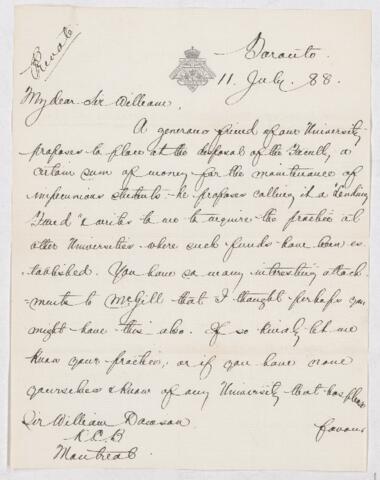 Private
Toronto.
11 July. 88.
My dear Sir William,
A generous friend of our University
proposes to place at the disposal of the Faculty a
certain sum of money for the maintenance of
impecunious students - he proposes calling it a "Lending
Fund" & writes to me to enquire the practice at
other Universities where such funds have been es-
tablished. You have so many interesting attach-
ments to McGill that I thought perhaps you
might have this also. If so kindly let me
know your practice, or if you have none
yourselves & know of any University that has please
favour
Sir William Dawson
K.C.B
Montreal